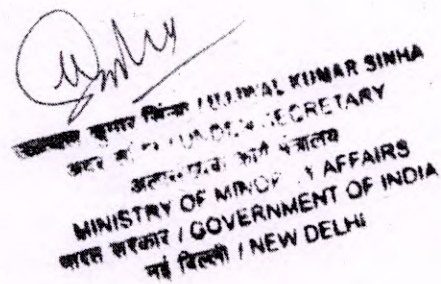 कुमार सिन्हा / UJJWAL KUMAR SINHA
अवर / UNDER SECRETARY
कार्य मंत्रालय
MINISTRY OF MINORITY AFFAIRS
भारत सरकार / GOVERNMENT OF INDIA
नई दिल्ली / NEW DELHI